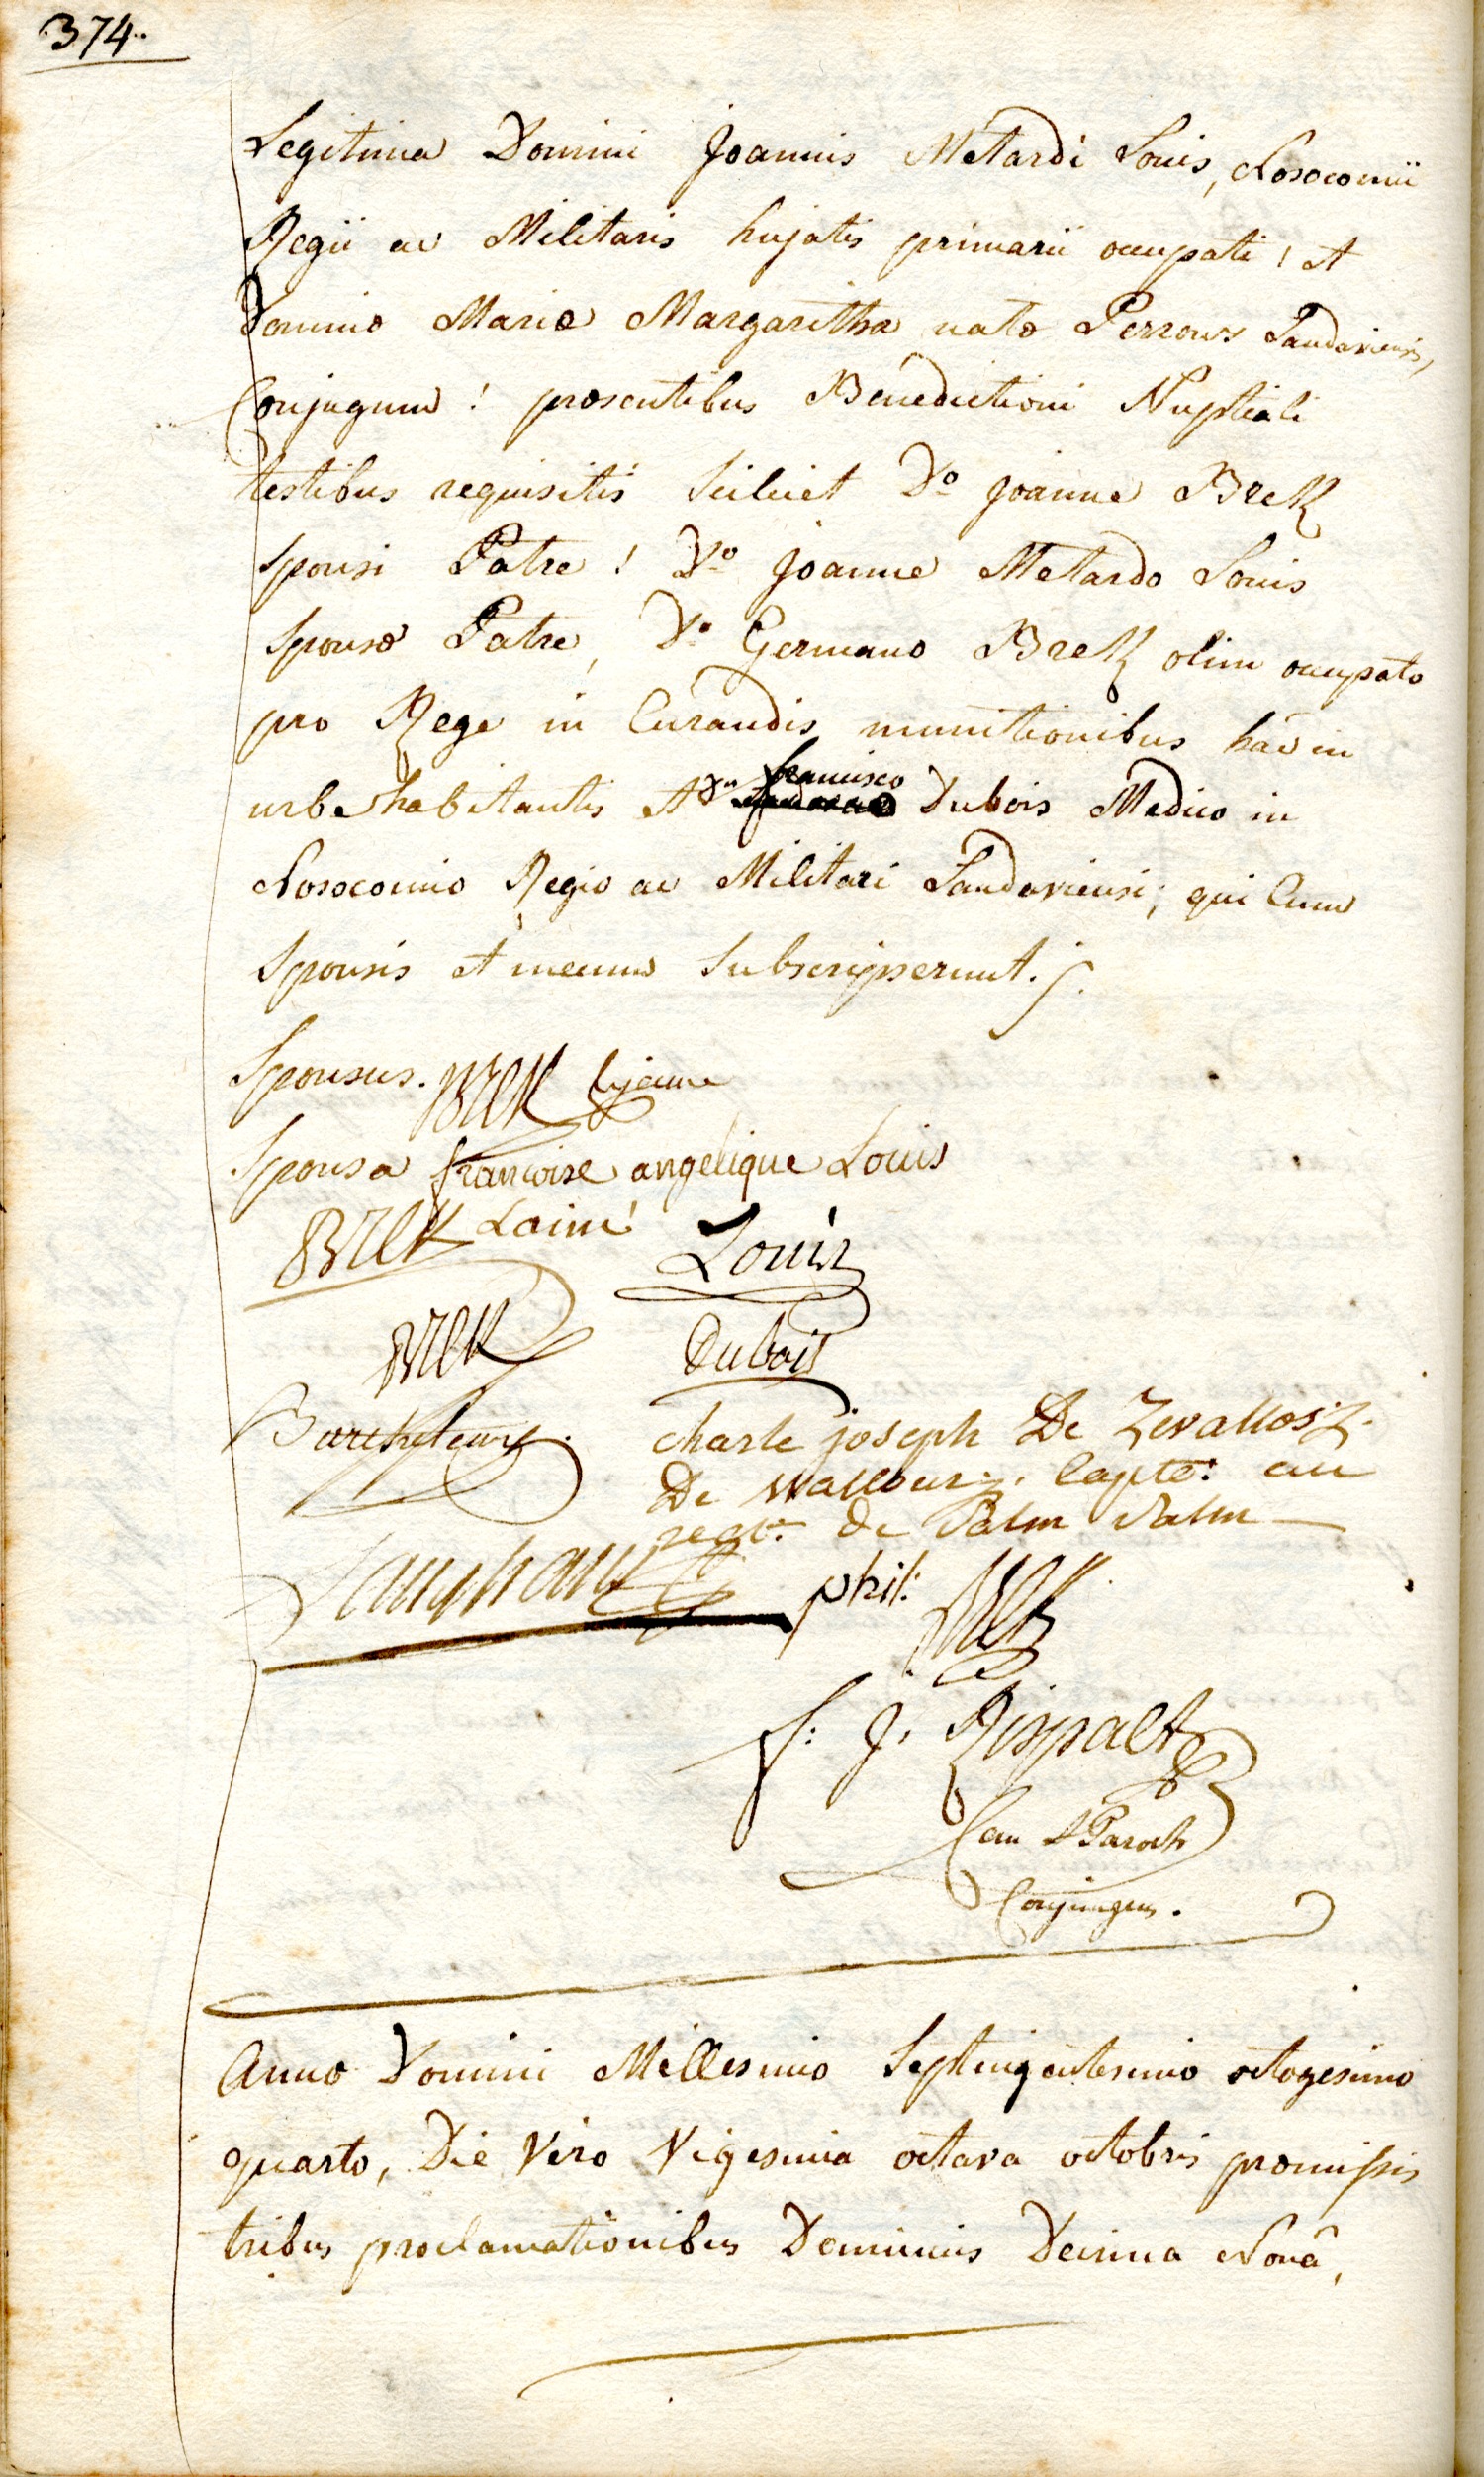 374.
Legitima Domini Joannis Metardi Louis, Nosocomii
Regii ac Militaris hujatis primarii occupati! et
Dominæ Mariæ Margarithæ natæ Perrows Landaviensis,
Conjugum! præsentibus Benedictioni Nuptiali
testibus requisitis scilicet Do Joanne Brek
sponsi Patre! Do Joanne Metardo Louis
sponsæ Patre, Do Germano Brek olim occupato
pro Rege in Curandis munitionibus hac in
urbe habitantis et Dno francisco Dubois Medico in
Nosocomio Regio ac Militari Landaviensi; qui Cum
sponsis et mecum subscripserunt.
Sponsus. Brek lejeune
Sponsa francoise angelique Louis
Brek Lainé Louis
Brek Dubois
charle joseph De Zevallos
De Capte: au
regt: de Salm Salm
phil: Brek
f: J. Rispalt
Can & Paroch
Conjungens.
Anno Domini Millesimo Septingentesimo octogesimo
quarto, Die Vero Vigesima octava octobris præmissis
tribus proclamationibus Dominicis Decima Nona,